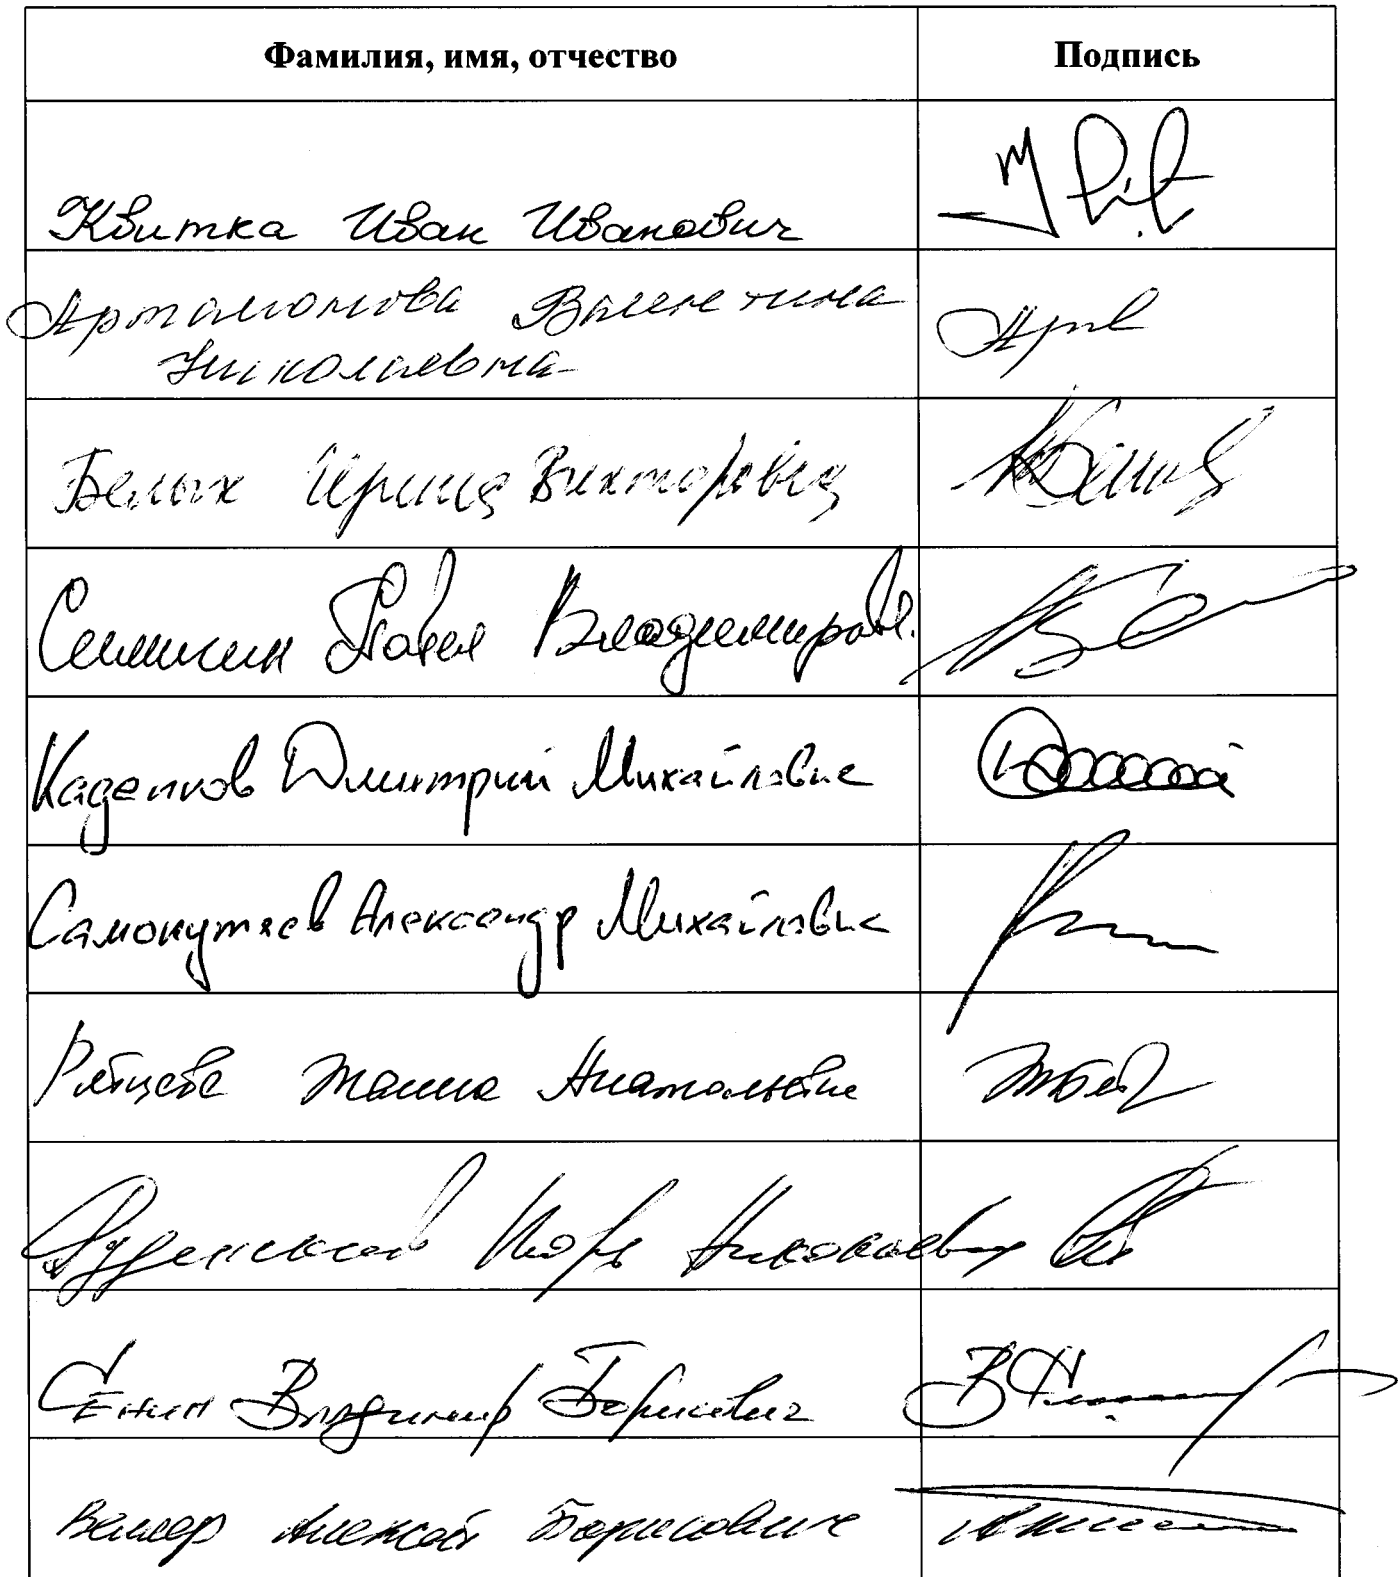 Фамилия, имя, отчество Подпись
Квитка Иван Иванович
Артамонова Валентина
Николаевна
Белых Ирина Викторовна
Семикин Павел Владимиров.
Каденков Дмитрий Михайлович
Самокутяев Александр Михайлович
Рябцева Жанна Анатольевна
Руденский Игорь Николаевич
Сенин Владимир Борисович
Веллер Алексей Борисович